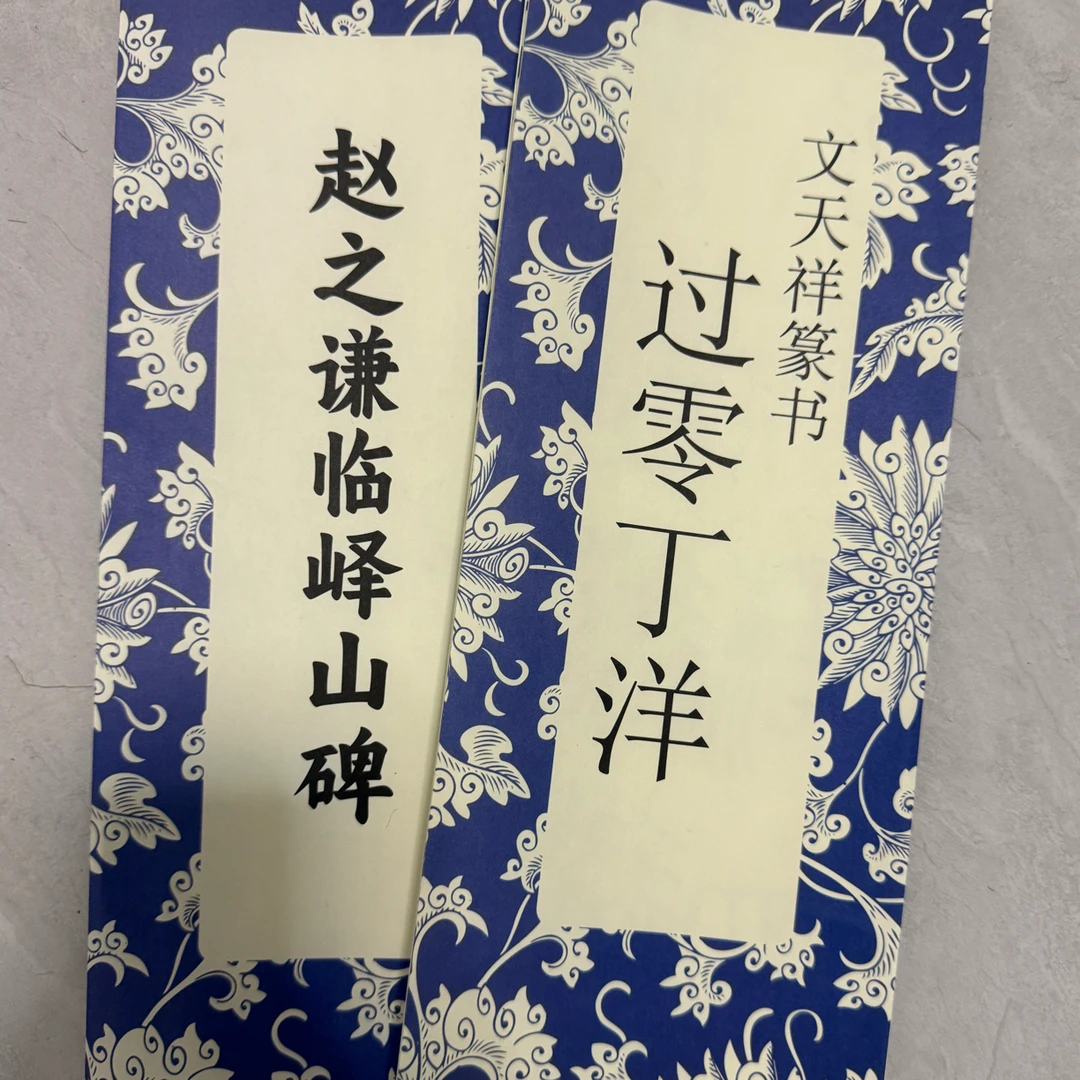 赵之谦临峄山碑
文天祥篆书
过零丁洋